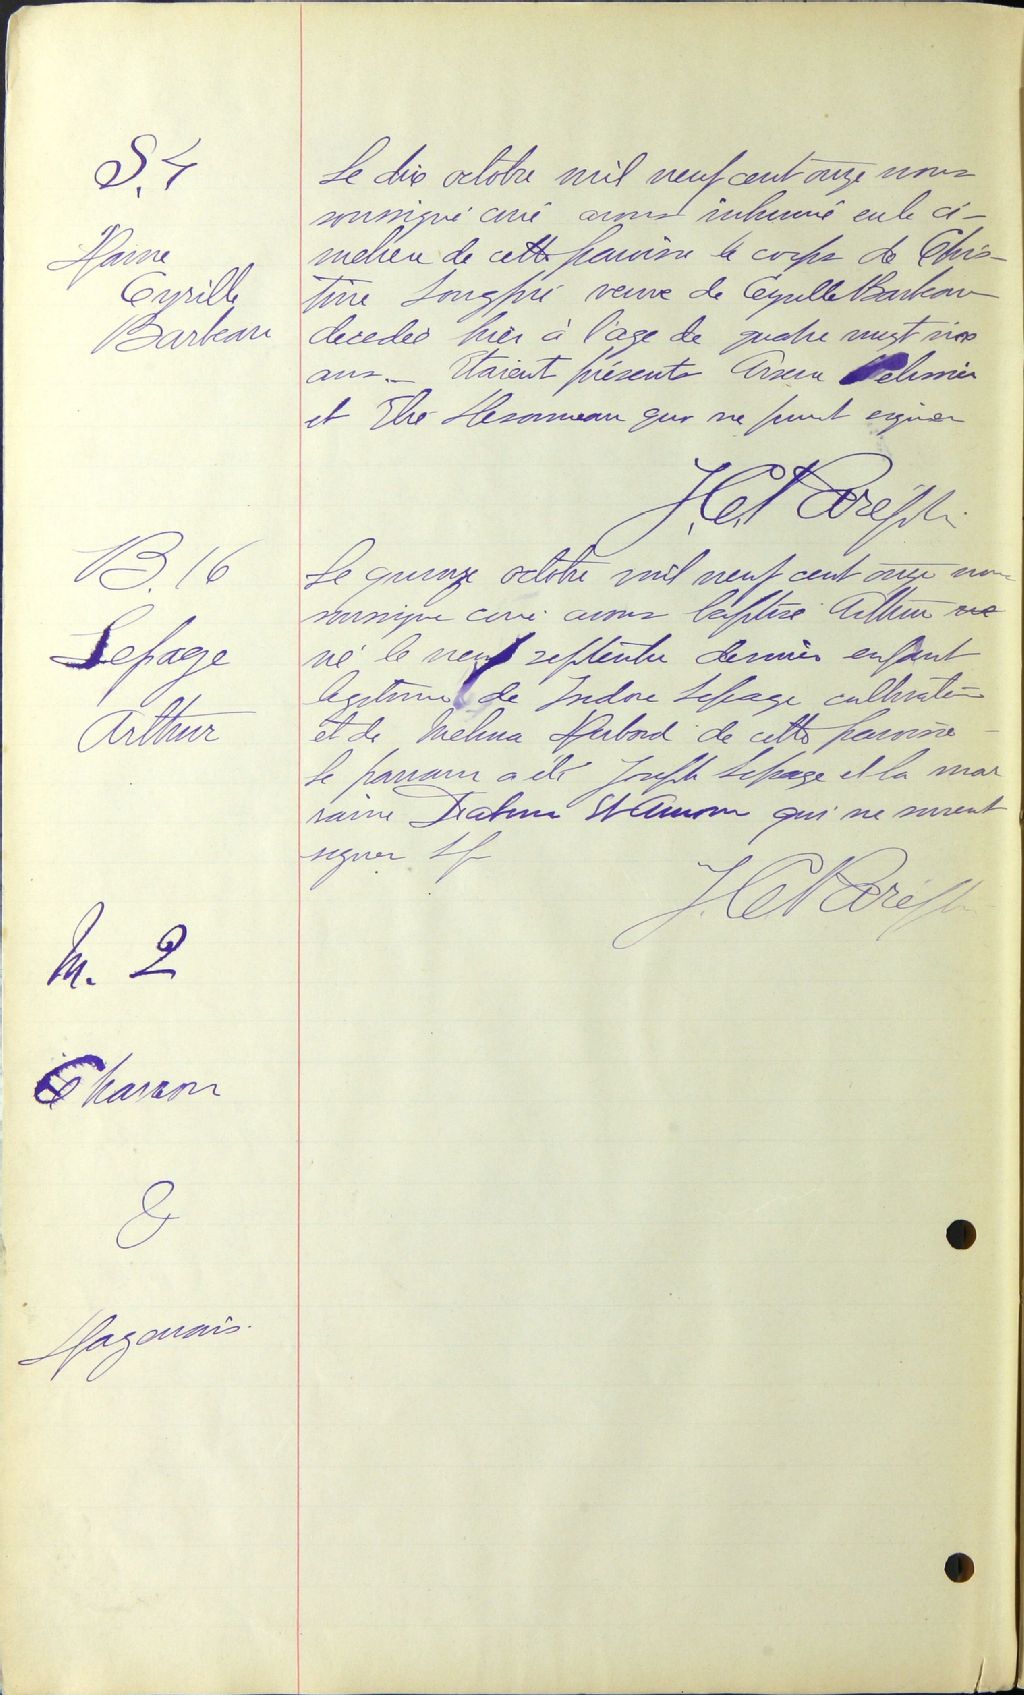 S. 4
Dame
Cyrille
Barbeau
Le dix octobre mil neuf cent onze nous
soussigné curé avons inhumé en le ci-
metière de cette paroisse le corps de Chris-
tine Longpré veuve de Cyrille Barbeau
décédée hier à l'age de quatre vingt
ans. Etaient présents Arsène
et qui ne purent signer
B. 16
Lepage
Arthur
Le quinze octobre mil neuf cent onze nous
soussigné curé avons baptisé Arthur
né le neuf septembre dernier enfant
legitime de Isidore Lepage cultivateur
et de Melina Nobord de cette paroisse
Le parrain a été Joseph Lepage et la mar
raine St Amour qui ne surent
signer
M. 2
Charron
&
Dagenais